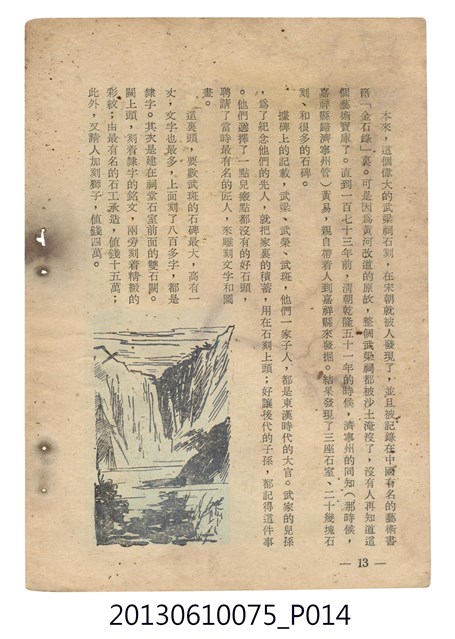 本來，這個偉大的武梁祠石刻，在宋朝就被人發現了，並且被記錄在中國有名的藝術書
籍「金石錄」裏。可是因爲黃河改道的原故，整個武梁祠都被沙土淹沒了，沒有人再知道這
個藝術寶庫了。直到一百七十三年前，清朝乾隆五十一年的時候，濟寧州的同知（那時候，
嘉祥縣歸濟寧州管）黃易，親自帶着人到嘉祥縣來發掘。結果發現了三座石室、二十幾塊石
刻、和很多的石碑。
據碑上的記載，武梁、武榮、武斑，他們一家子人，都是東漢時代的大官。武家的兒孫
，爲了紀念他們的先人，就把家裏的積蓄，用在石刻上頭；好讓後代的子孫，都記得這件事
。他們選擇了一點兒瘢點都沒有的好石頭，
聘請了當時最有名的匠人，來雕刻文字和圖
畫。
這裏頭，要數武斑的石碑最大，高有一
丈，文字也最多，上面刻了八百多字，都是
隸字。其次是建在祠堂石室前面的雙石闕。
闕上頭，刻着隸字的銘文，兩旁刻着精緻的
彩紋；由最有名的石工承造，值錢十五萬；
此外，又請人加刻獅子，值錢四萬。
— 13 —
20130610075_P014